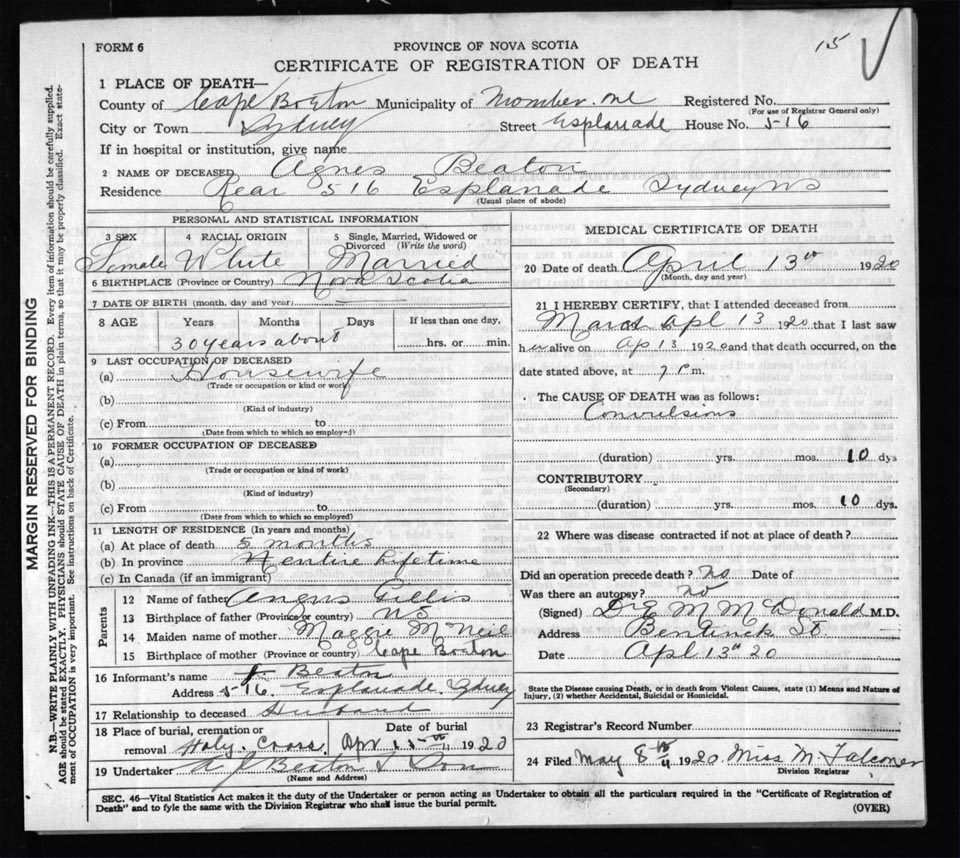 FORM 6
PROVINCE OF NOVA SCOTIA
15
CERTIFICATE OF REGISTRATION OF DEATH
1 PLACE OF DEATH—
County of Cape Boston Municipality of Registered No.
(For use of Registrar General only)
City or Town Sydney Street Esplanade House No. 516
If in hospital or institution, give name
2 NAME OF DECEASED Agnes Beaton
Residence Rear 516 Esplanade Sydney NS
(Usual place of abode)
PERSONAL AND STATISTICAL INFORMATION
3 SEX 4 RACIAL ORIGIN 5 Single, Married, Widowed or Divorced (Write the word)
Female White Married
6 BIRTHPLACE (Province or Country) Nova Scotia
7 DATE OF BIRTH (month, day and year)
8 AGE Years Months Days If less than one day,
30 years about hrs. or min.
9 LAST OCCUPATION OF DECEASED
(a) Housewife
(Trade or occupation or kind or work)
(b)
(Kind of industry)
(c) From to
(Date from which to which so employed)
10 FORMER OCCUPATION OF DECEASED
(a)
(Trade or occupation or kind of work)
(b)
(Kind of industry)
(c) From to
(Date from which to which so employed)
11 LENGTH OF RESIDENCE (In years and months)
(a) At place of death 5 months
(b) In province entire Lifetime
(c) In Canada (if an immigrant)
Parents
12 Name of father Angus Gillis
13 Birthplace of father (Province or country) NS
14 Maiden name of mother Maggie McNeil
15 Birthplace of mother (Province or country) Cape Boston
16 Informant's name Beaton
Address 516 Esplanade Sydney
17 Relationship to deceased Husband
18 Place of burial, cremation or removal Holy Cross Date of burial Apr 15th 1920
19 Undertaker A J Beaton & Son
(Name and Address)
MEDICAL CERTIFICATE OF DEATH
20 Date of death April 13th 1920
(Month, day and year)
21 I HEREBY CERTIFY, that I attended deceased from
March to Apl 13 1920 that I last saw
her alive on Ap 13 1920 and that death occurred, on the
date stated above, at 7 P.m.
The CAUSE OF DEATH was as follows:
Convulsions
(duration) yrs. mos. 10 dys
CONTRIBUTORY
(Secondary)
(duration) yrs. mos. 10 dys.
22 Where was disease contracted if not at place of death?
Did an operation precede death? No Date of
Was there an autopsy? No
(Signed) Dr E M McDonald M.D.
Address Bentinck St.
Date Apl 13th 20
State the Disease causing Death, or in death from Violent Causes, state (1) Means and Nature of
Injury, (2) whether Accidental, Suicidal or Homicidal.
23 Registrar's Record Number
24 Filed May 8th 1920 Miss M Falconer
Division Registrar
SEC. 46—Vital Statistics Act makes it the duty of the Undertaker or person acting as Undertaker to obtain all the particulars required in the "Certificate of Registration of
Death" and to fyle the same with the Division Registrar who shall issue the burial permit.
(OVER)
MARGIN RESERVED FOR BINDING
N.B.—WRITE PLAINLY WITH UNFADING INK—THIS IS A PERMANENT RECORD. Every item of information should be carefully supplied.
AGE should be stated EXACTLY. PHYSICIANS should STATE CAUSE OF DEATH in plain terms, so that it may be properly classified. Exact state-
ment of OCCUPATION is very important. See instructions on back of Certificate.